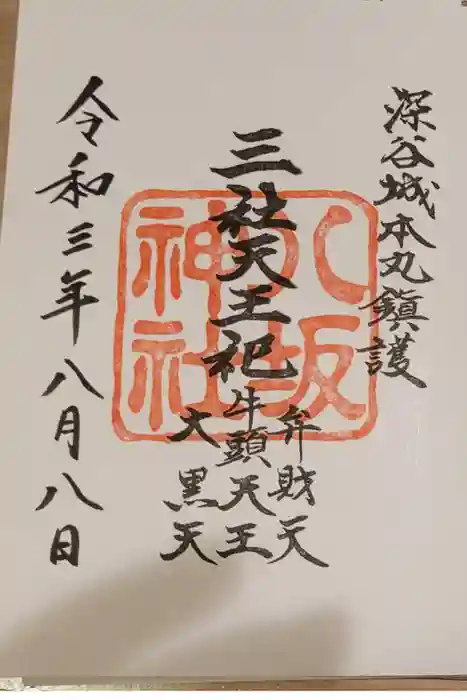 深谷城本丸鎮護
三社天王祀
弁財天
牛頭天王
大黒天
八坂
神社
令和三年八月八日